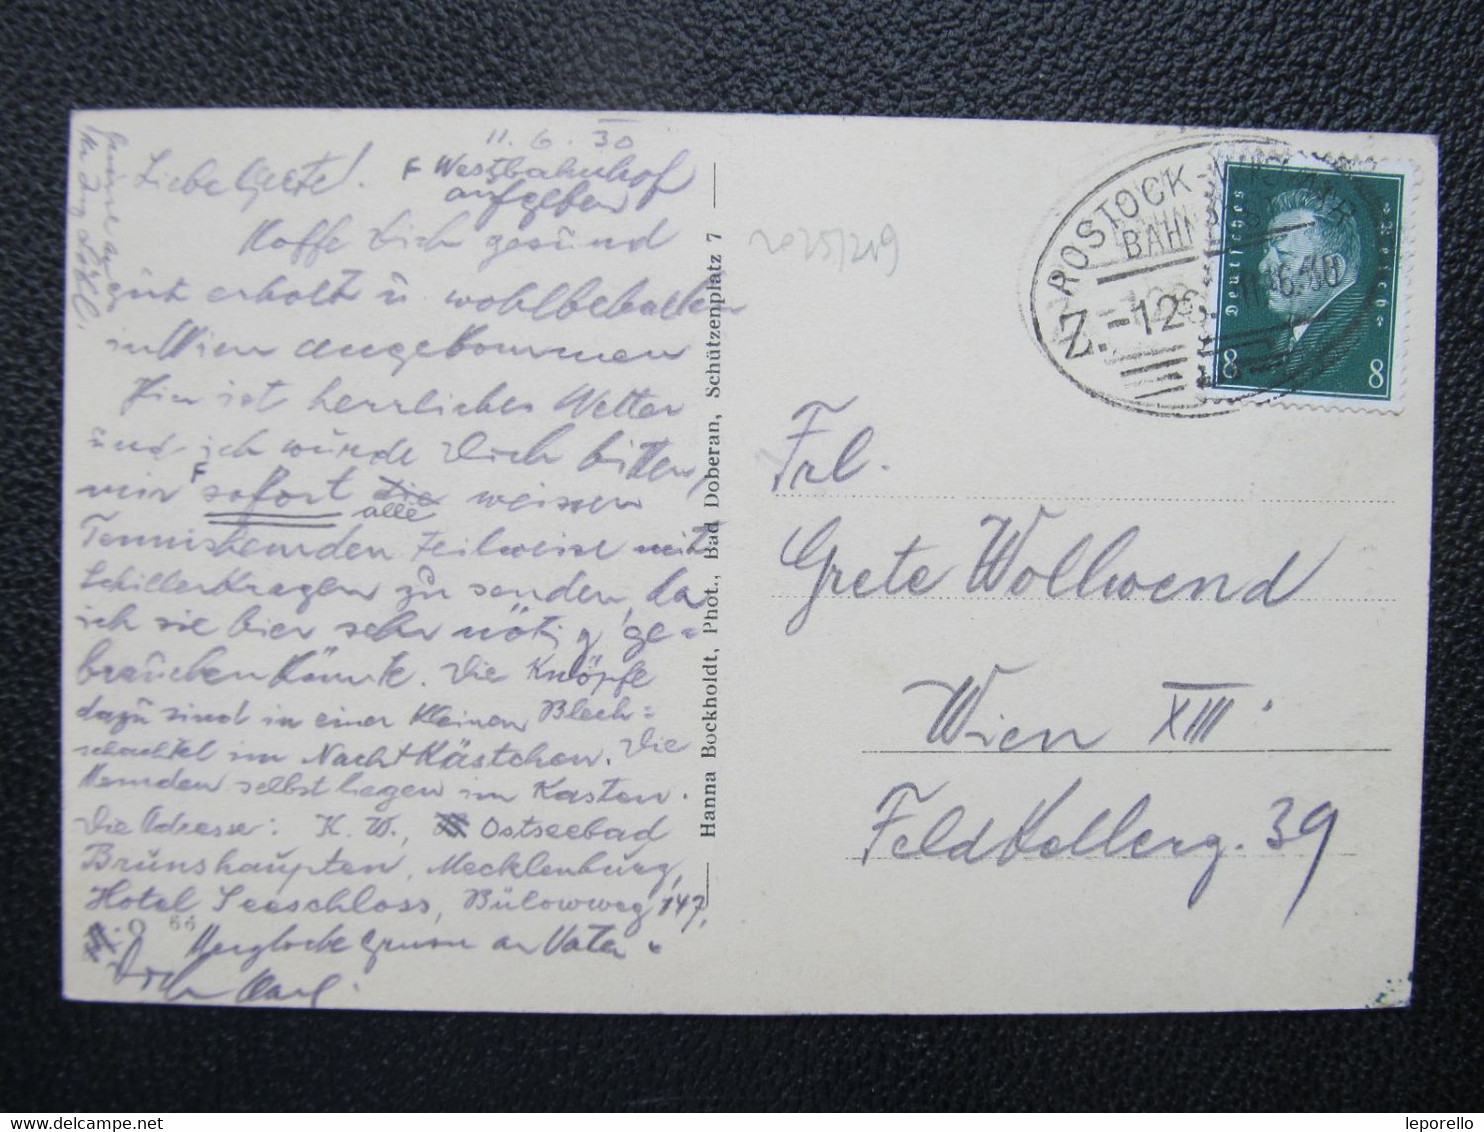 11.6.30
Liebe Grete!
F Westbahnhof
aufgeben
Hoffe Dich gesund
gut erholt u. wohlbehalten
in Wien angekommen
Hier ist herrliches Wetter
und ich würde Dich bitten,
mir F sofort die alle weissen
Tennishemden teilweise mit
Schillerkragen zu senden, da
ich sie hier sehr nötig ge-
brauchen könnte. Die Knöpfe
dazu sind in einer kleinen Blech=
schachtel im Nachtkästchen. Die
Hemden selbst liegen im Kasten.
Die Adresse: K. W., Ostseebad
Brunshaupten, Mecklenburg,
Hotel Seeschloss, Bülowweg 147.
Herzliche Grüsse an Vater u.
Dich Karl.
O 66
Hanna Bockholdt, Phot., Bad Doberan, Schützenplatz 7
2025/209
ROSTOCK-WISMAR
BAHNPOST
Z. 12
11.6.30
Deutsches Reich
8 8
Frl.
Grete Wollwend
Wien XIII.
Feldkellerg. 39
leporello